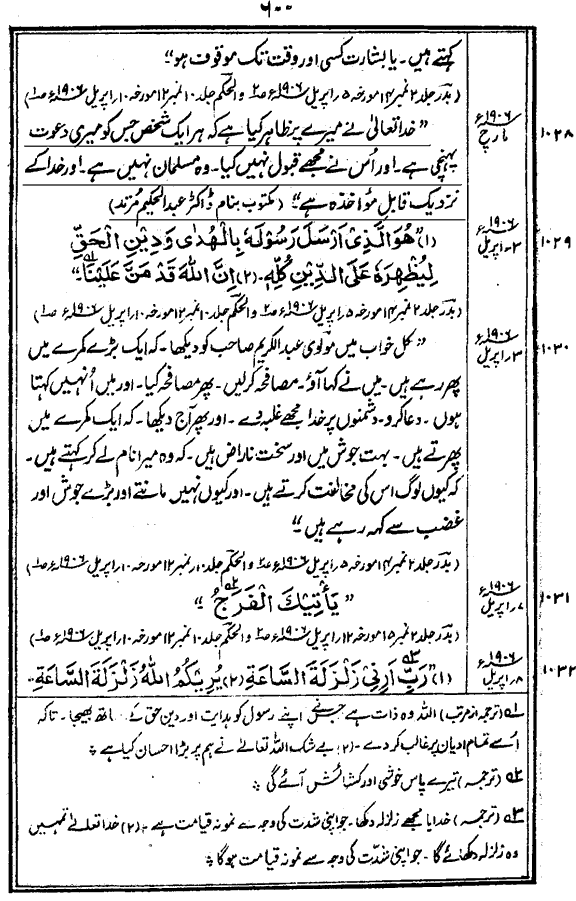 ۶۰۰
کہتے ہیں۔ یا بشارت کسی اور وقت تک موقوف ہو"
(بدر جلد ۲ نمبر ۱۴ مورخہ ۵ اپریل ۱۹۰۶ء صـ۲ والحکم جلد ۱۰ نمبر ۱۲ مورخہ ۱۰ اپریل ۱۹۰۶ء صـ۱)
۱۰۲۸ ۱۹۰۶ء مارچ
"خدا تعالیٰ نے میرے پر ظاہر کیا ہے کہ ہر ایک شخص جس کو میری دعوت
پہنچی ہے۔ اور اُس نے مجھے قبول نہیں کیا۔ وہ مسلمان نہیں ہے۔ اور خدا کے
نزدیک قابلِ مؤاخذہ ہے" (مکتوب بنام ڈاکٹر عبدالحکیم مُرتد)
۱۰۲۹ ۱۹۰۶ء ۲؍اپریل
(۱)"هُوَ الَّذِیْ اَرْسَلَ رَسُوْلَهٗ بِالْهُدٰی وَدِیْنِ الْحَقِّ
لِیُظْهِرَهٗ عَلَی الدِّیْنِ کُلِّهٖ۔ (۲) اِنَّ اللّٰهَ قَدْ مَنَّ عَلَیْنَا"لہ
(بدر جلد ۲ نمبر ۱۴ مورخہ ۵ اپریل ۱۹۰۶ء صـ۲ والحکم جلد ۱۰ نمبر ۱۲ مورخہ ۱۰ اپریل ۱۹۰۶ء صـ۱)
۱۰۳۰ ۱۹۰۶ء ۳؍اپریل
"کل خواب میں مولوی عبدالکریم صاحب کو دیکھا۔ کہ ایک بڑے کمرے میں
پھر رہے ہیں۔ میں نے کہا آؤ۔ مصافحہ کرلیں۔ پھر مصافحہ کیا۔ اور میں اُنہیں کہتا
ہوں۔ دعا کرو۔ دشمنوں پر خدا مجھے غلبہ دے۔ اور پھر آج دیکھا۔ کہ ایک کمرے میں
پھرتے ہیں۔ بہت جوش میں اور سخت ناراض ہیں۔ کہ وہ میرا نام لے کر کہتے ہیں۔
کہ کیوں لوگ اس کی مخالفت کرتے ہیں۔ اور کیوں نہیں مانتے اور بڑے جوش اور
غضب سے کہہ رہے ہیں"
(بدر جلد ۲ نمبر ۱۴ مورخہ ۵ اپریل ۱۹۰۶ء صـ۲ والحکم جلد ۱۰ نمبر ۱۲ مورخہ ۱۰ اپریل ۱۹۰۶ء صـ۱)
۱۰۳۱ ۱۹۰۶ء ۷؍اپریل
"یَأْتِیْكَ الْفَرَجُ"۲ہ
(بدر جلد ۲ نمبر ۱۵ مورخہ ۱۲ اپریل ۱۹۰۶ء صـ۲ والحکم جلد ۱۰ نمبر ۱۲ مورخہ ۱۰ اپریل ۱۹۰۶ء صـ۱)
۱۰۳۲ ۱۹۰۶ء ۸؍اپریل
(۱)"رَبِّ اَرِنِیْ زَلْزَلَةَ السَّاعَةِ (۲) یُرِیْکُمُ اللّٰهُ زَلْزَلَةَ السَّاعَةِ۔
لہ (ترجمہ از مرتب) اللہ وہ ذات ہے جس نے اپنے رسول کو ہدایت اور دین حق کے ساتھ بھیجا۔ تاکہ
اُسے تمام ادیان پر غالب کر دے۔ (۲) بے شک اللہ تعالیٰ نے ہم پر بڑا احسان کیا ہے؞
۲ہ (ترجمہ) تیرے پاس خوشی اور کشائش آئے گی؞
۳ہ (ترجمہ) خدایا مجھے زلزلہ دکھا۔ جو اپنی شدت کی وجہ سے نمونہ قیامت ہے۔ (۲) خدا تعالیٰ تمہیں
وہ زلزلہ دکھائے گا۔ جو اپنی شدّت کی وجہ سے نمونہ قیامت ہوگا؞